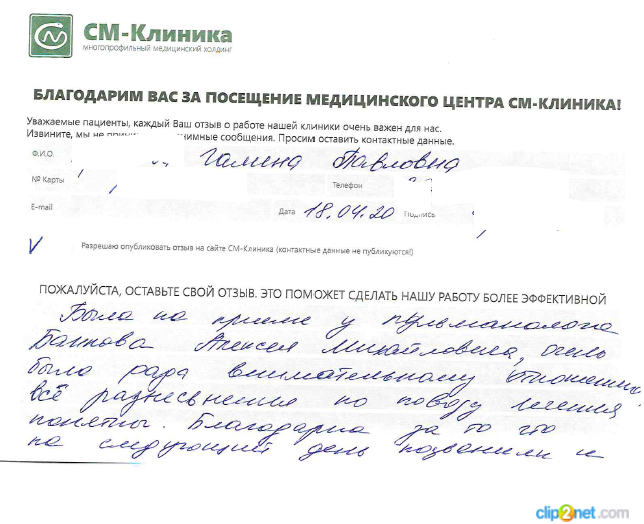 СМ-Клиника
многопрофильный медицинский холдинг
БЛАГОДАРИМ ВАС ЗА ПОСЕЩЕНИЕ МЕДИЦИНСКОГО ЦЕНТРА СМ-КЛИНИКА!
Уважаемые пациенты, каждый Ваш отзыв о работе нашей клиники очень важен для нас.
Извините, мы не нимные сообщения. Просим оставить контактные данные.
Ф.И.О. Галина Павловна
№ Карты Телефон
E-mail Дата 18.04.20 Подпись
V Разрешаю опубликовать отзыв на сайте СМ-Клиника (контактные данные не публикуются!)
ПОЖАЛУЙСТА, ОСТАВЬТЕ СВОЙ ОТЗЫВ. ЭТО ПОМОЖЕТ СДЕЛАТЬ НАШУ РАБОТУ БОЛЕЕ ЭФФЕКТИВНОЙ
Была на приеме у пульманолога
Алексея Михайловича, очень
была рада внимательному отношению,
всё разъеснения по поводу лечения
понятны. Благодарна за то что
на следующий день позвонили и
clip2net.com